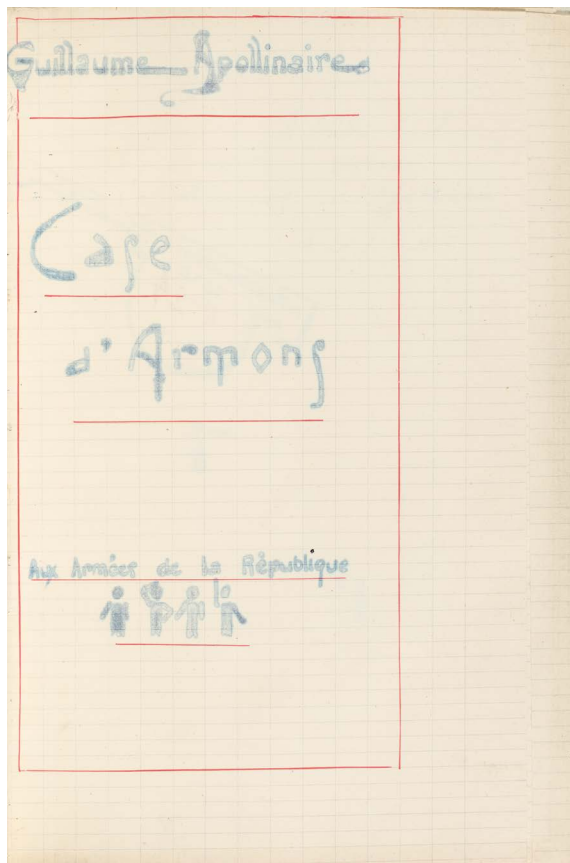 Guillaume Apollinaire
Case
d'Armons
Aux Armées de la République